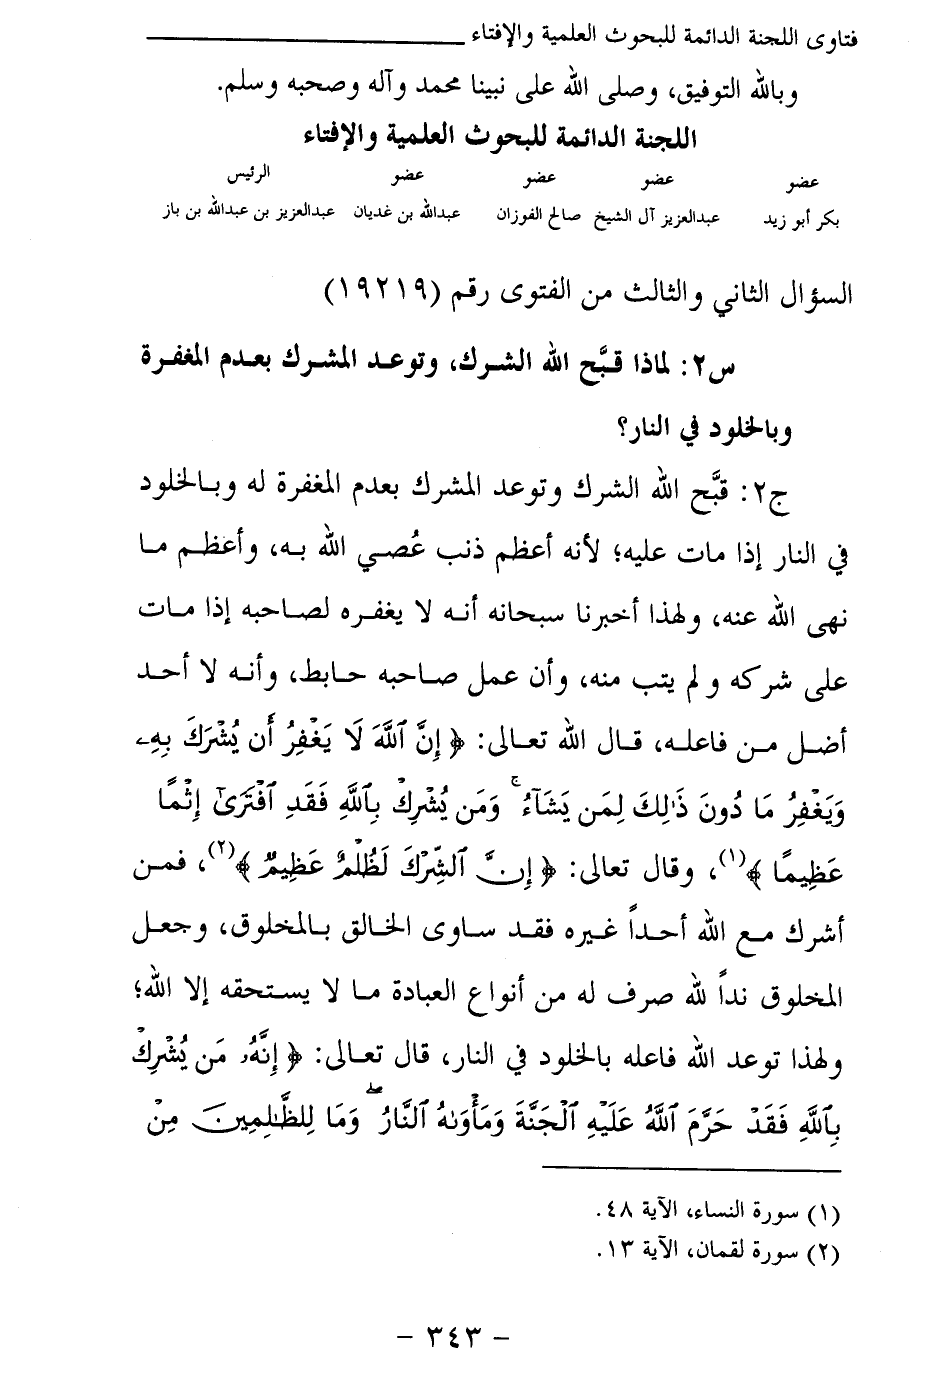 فتاوى اللجنة الدائمة للبحوث العلمية والإفتاء
وبالله التوفيق، وصلى الله على نبينا محمد وآله وصحبه وسلم.
اللجنة الدائمة للبحوث العلمية والإفتاء
عضو عضو عضو عضو الرئيس
بكر أبو زيد عبدالعزيز آل الشيخ صالح الفوزان عبدالله بن غديان عبدالعزيز بن عبدالله بن باز
السؤال الثاني والثالث من الفتوى رقم (١٩٢١٩)
س٢: لماذا قبَّح الله الشرك، وتوعد المشرك بعدم المغفرة
وبالخلود في النار؟
ج٢: قبَّح الله الشرك وتوعد المشرك بعدم المغفرة له وبالخلود
في النار إذا مات عليه؛ لأنه أعظم ذنب عُصي الله به، وأعظم ما
نهى الله عنه، ولهذا أخبرنا سبحانه أنه لا يغفره لصاحبه إذا مات
على شركه ولم يتب منه، وأن عمل صاحبه حابط، وأنه لا أحد
أضل من فاعله، قال الله تعالى: ﴿ إِنَّ ٱللَّهَ لَا يَغْفِرُ أَن يُشْرَكَ بِهِۦ
وَيَغْفِرُ مَا دُونَ ذَٰلِكَ لِمَن يَشَآءُ ۚ وَمَن يُشْرِكْ بِٱللَّهِ فَقَدِ ٱفْتَرَىٰٓ إِثْمًا
عَظِيمًا ﴾(١)، وقال تعالى: ﴿ إِنَّ ٱلشِّرْكَ لَظُلْمٌ عَظِيمٌ ﴾(٢)، فمن
أشرك مع الله أحداً غيره فقد ساوى الخالق بالمخلوق، وجعل
المخلوق نداً لله صرف له من أنواع العبادة ما لا يستحقه إلا الله؛
ولهذا توعد الله فاعله بالخلود في النار، قال تعالى: ﴿ إِنَّهُۥ مَن يُشْرِكْ
بِٱللَّهِ فَقَدْ حَرَّمَ ٱللَّهُ عَلَيْهِ ٱلْجَنَّةَ وَمَأْوَىٰهُ ٱلنَّارُ ۖ وَمَا لِلظَّٰلِمِينَ مِنْ
(١) سورة النساء، الآية ٤٨.
(٢) سورة لقمان، الآية ١٣.
- ٣٤٣ -